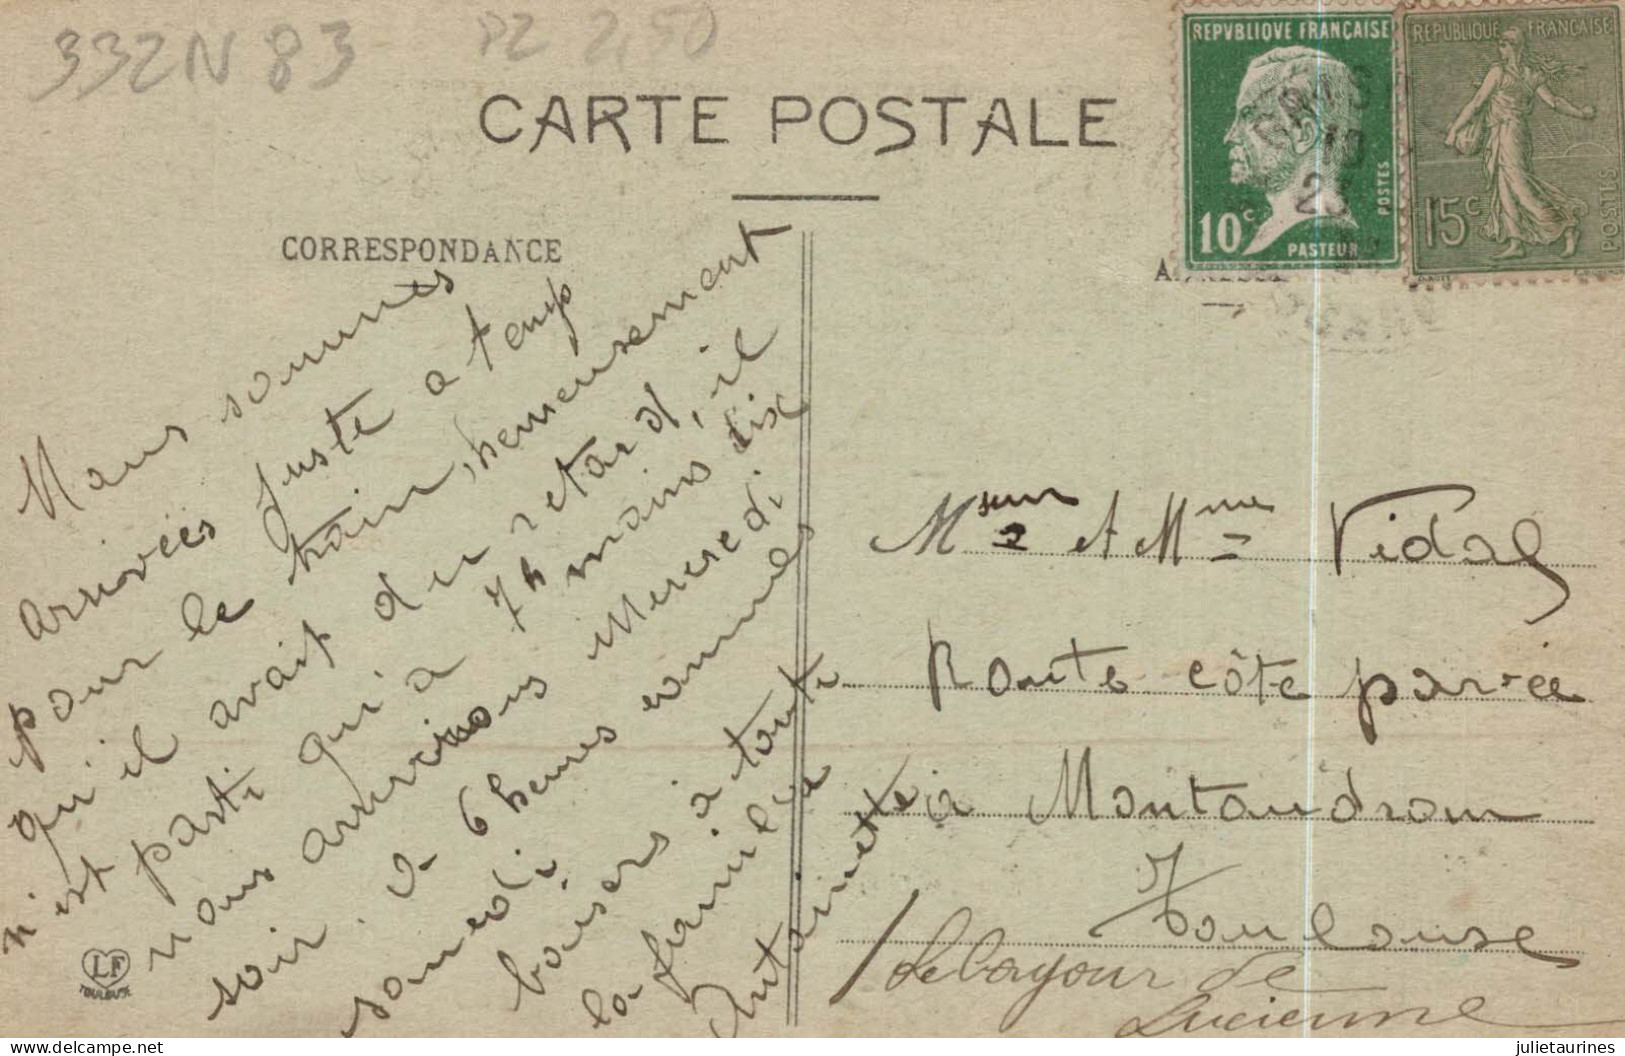 332N 83
PZ 2,50
CARTE POSTALE
REPVBLIQVE FRANÇAISE
10c
PASTEUR
POSTES
REPUBLIQUE FRANÇAISE
15c
POSTES
10
23
CORRESPONDANCE
Nous sommes
arrivées juste a temps
pour le train, heureusement
qu'il avait du retard, il
n'est parti qu'a 7h moins dix
nous arrivions mercredi
soir a 6 heures
samedi
baisers à toute
la famille
Antoinette
Msieur et Mme Vidal
Route côte pavée
à Montaudran
Toulouse
Le bonjour de
Lucienne
LF
TOULOUSE
julietaurines